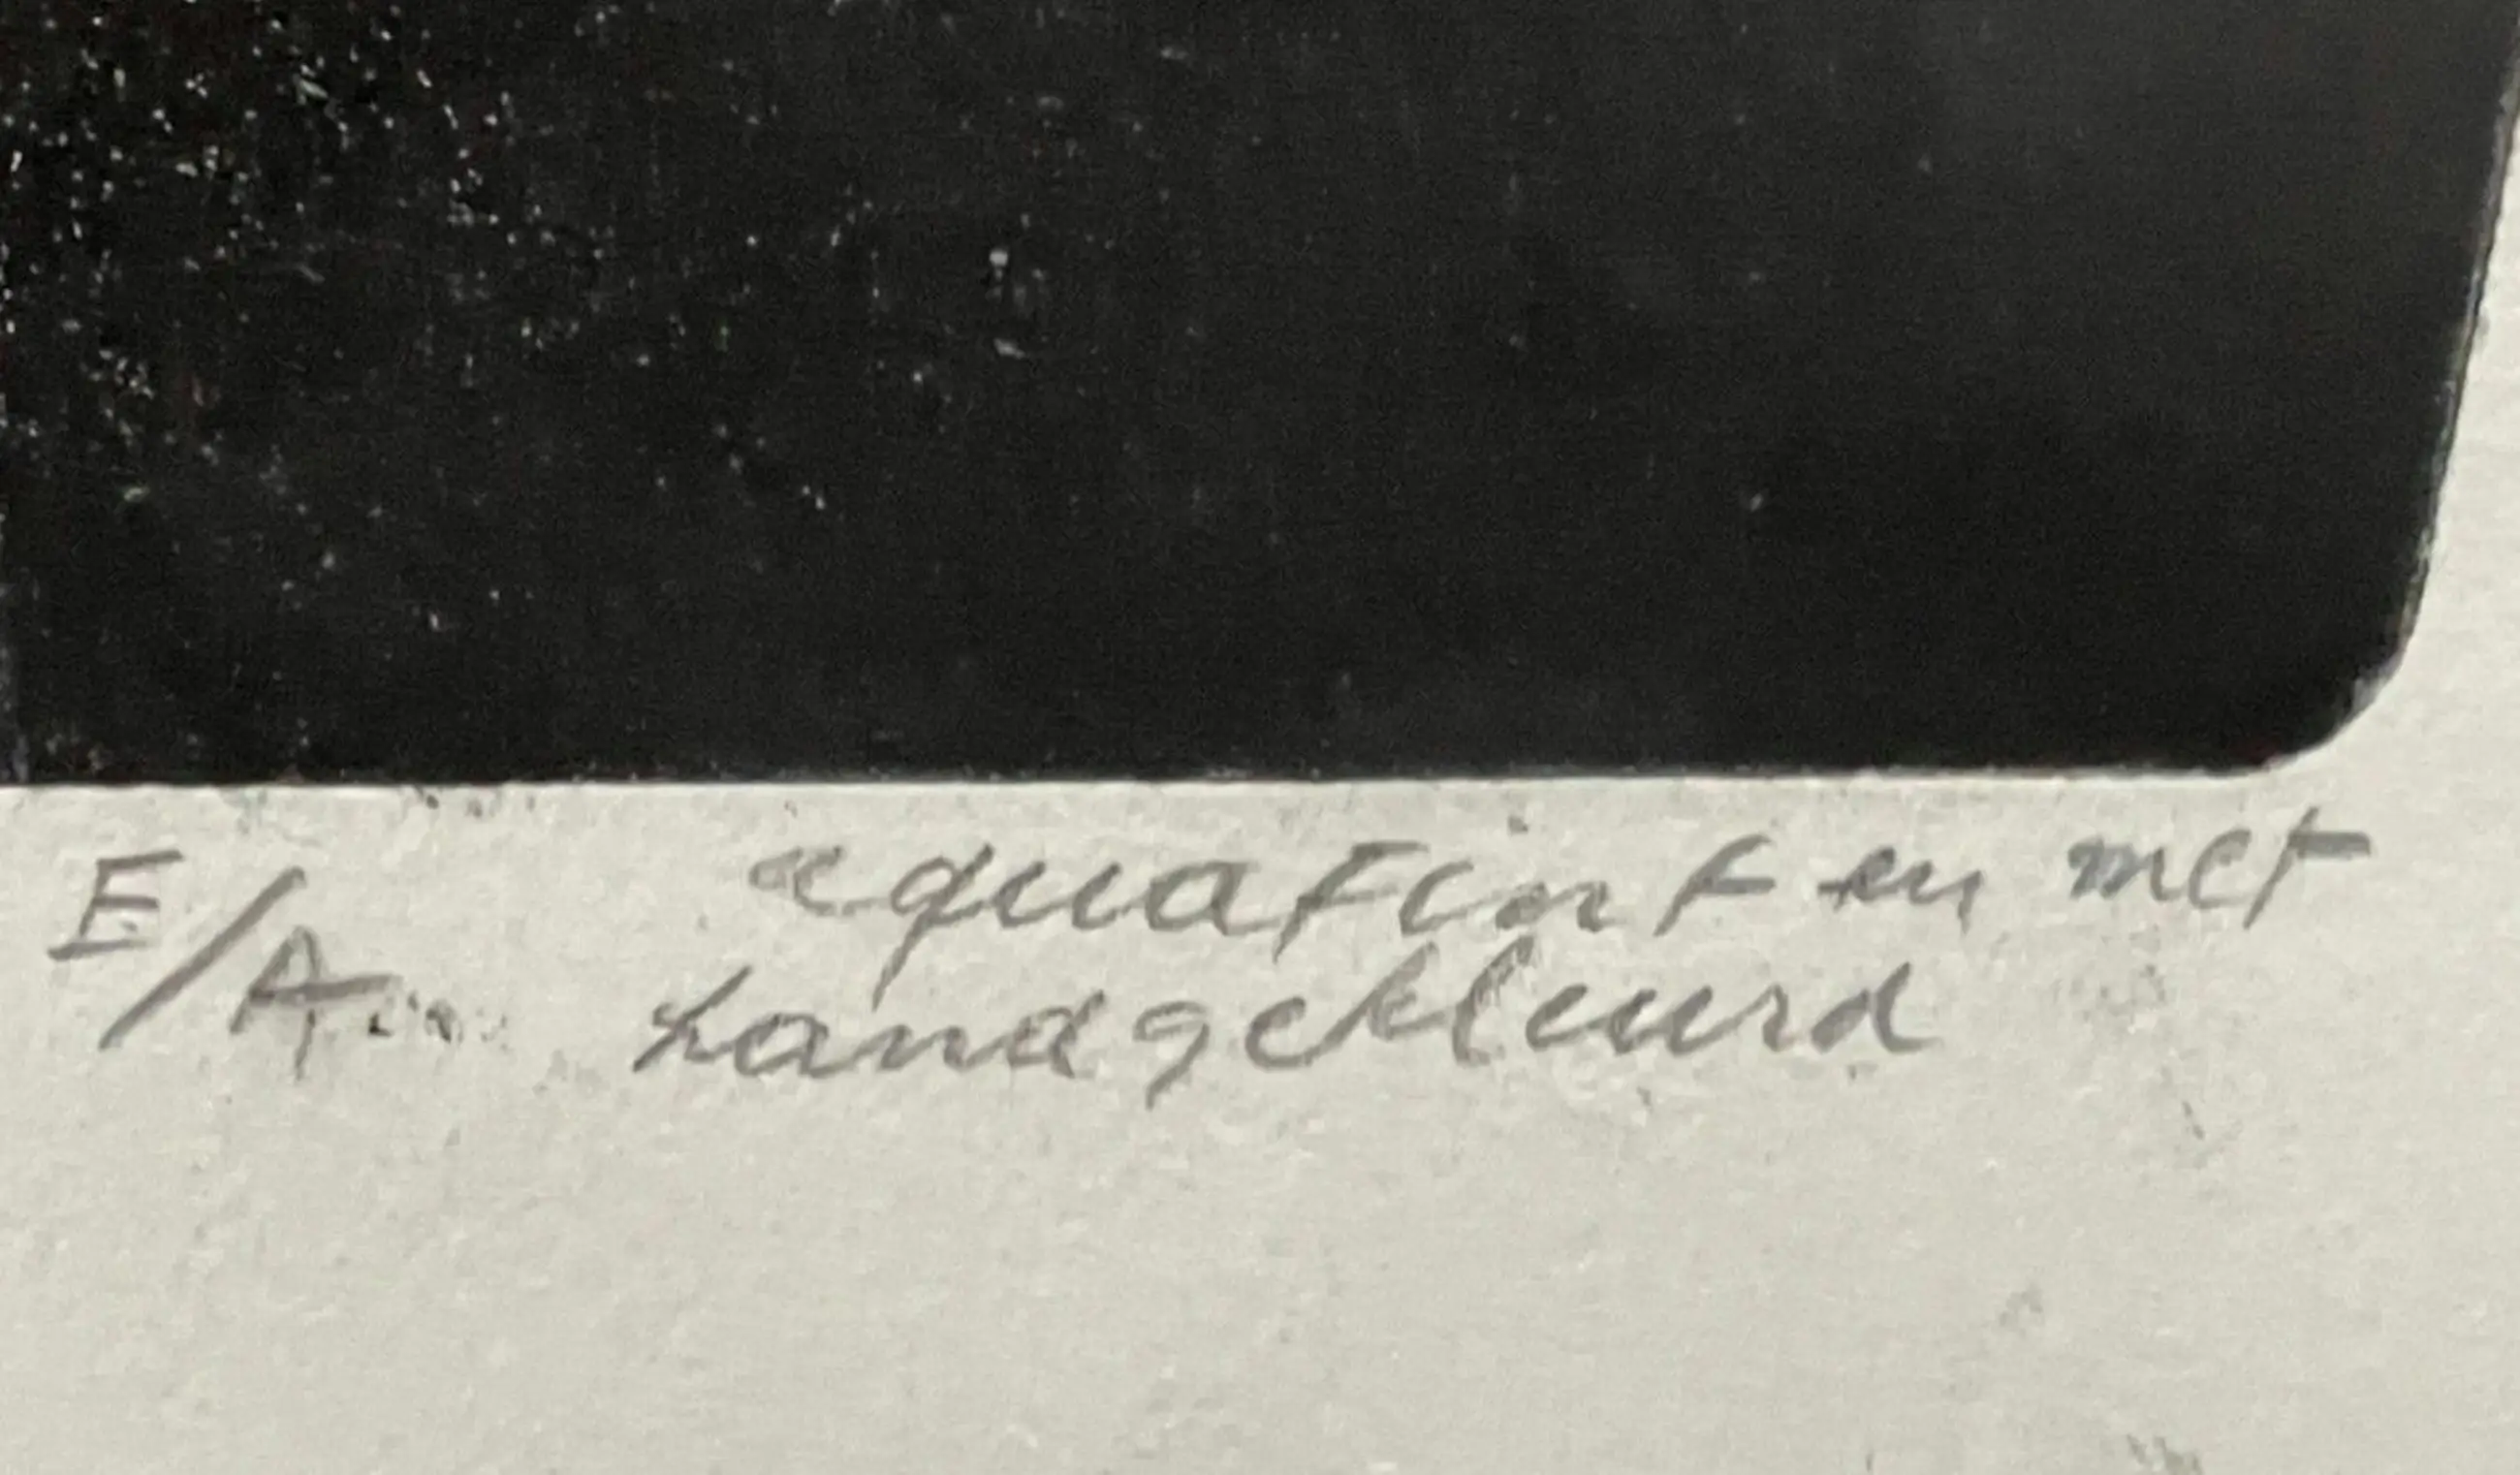 E/A aquatint en met
handgekleurd